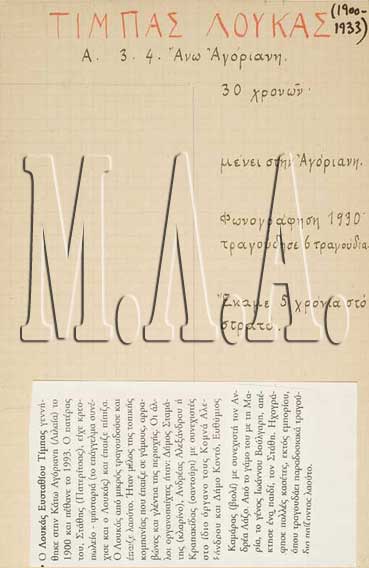 ΤΙΜΠΑΣ ΛΟΥΚΑΣ (1900-
1933)
Α. 3. 4. Ἄνω Ἀγόριανη.
30 χρονῶν.
μένει στὴν Ἀγόριανη.
Φωνογράφηση 1930
τραγούδησε 6 τραγούδια
Ἔκαμε 5 χρόνια στό
στρατο.
Μ.Λ.Α.
• Ο Λουκάς Ευσταθίου Τίμπας γεννή-
θηκε στην Κάτω Αγόριανη (Λιλαία) το
1900 και πέθανε το 1993. Ο πατέρας
του, Στάθης (Πιτερίτσος), είχε κρεο-
πωλείο - ψησταριά (το επάγγελμα συνέ-
χισε και ο Λουκάς) και έπαιζε πίπιζα.
Ο Λουκάς από μικρός τραγουδούσε και
έπαιζε λαούτο. Ήταν μέλος της τοπικής
κομπανίας που έπαιζε σε γάμους, αρρα-
βώνες και γλέντια της περιοχής. Οι άλ-
λοι οργανοπαίχτες ήταν: Δήμος Σταμά-
της (κλαρίνο), Ανδρέας Αλεξάνδρου ή
Κραπακίδας (σαντούρι) με συνεχιστές
στο ίδιο όργανο τους Κομνά Αλε-
ξάνδρου και Δήμο Κοντό, Ευθύμιος
Καμάρας (βιολί) με συνεχιστή τον Αν-
δρέα Λάζο. Από το γάμο του με τη Μα-
ρία, το γένος Ιωάννου Βούλγαρη, απέ-
κτησε ένα παιδί, τον Στάθη. Ηχογρά-
φησε πολλές κασέτες, εκτός εμπορίου,
όπου τραγουδάει παραδοσιακά τραγού-
δια παίζοντας λαούτο.